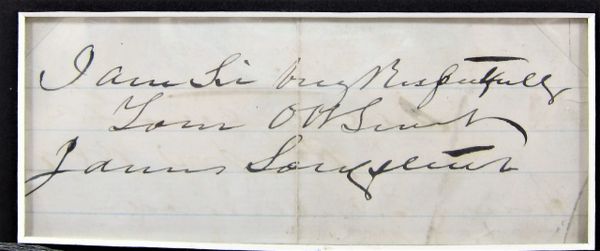 I am Sir Very Respectfully
Your Obt Servt
James Longstreet